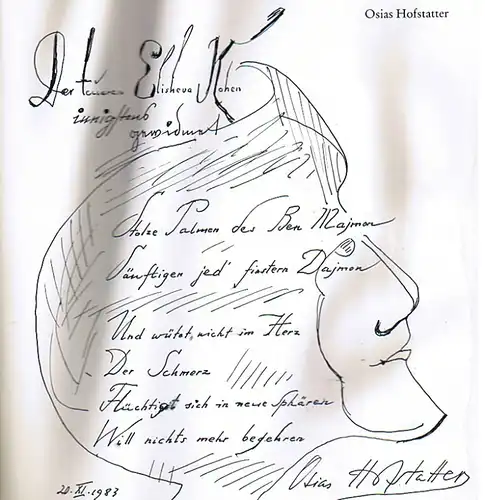 Osias Hofstatter
Der teuren Elisheva Kohen
innigstens
gewidmet
Stolze Palmen des Ben Majmon
Sänftigen jed' finstern Dajmon
Und wütet nicht im Herz
Der Schmerz
Flüchtigt sich in neue Sphären
Will nichts mehr begehren
20.XI.1983
Osias Hofstatter